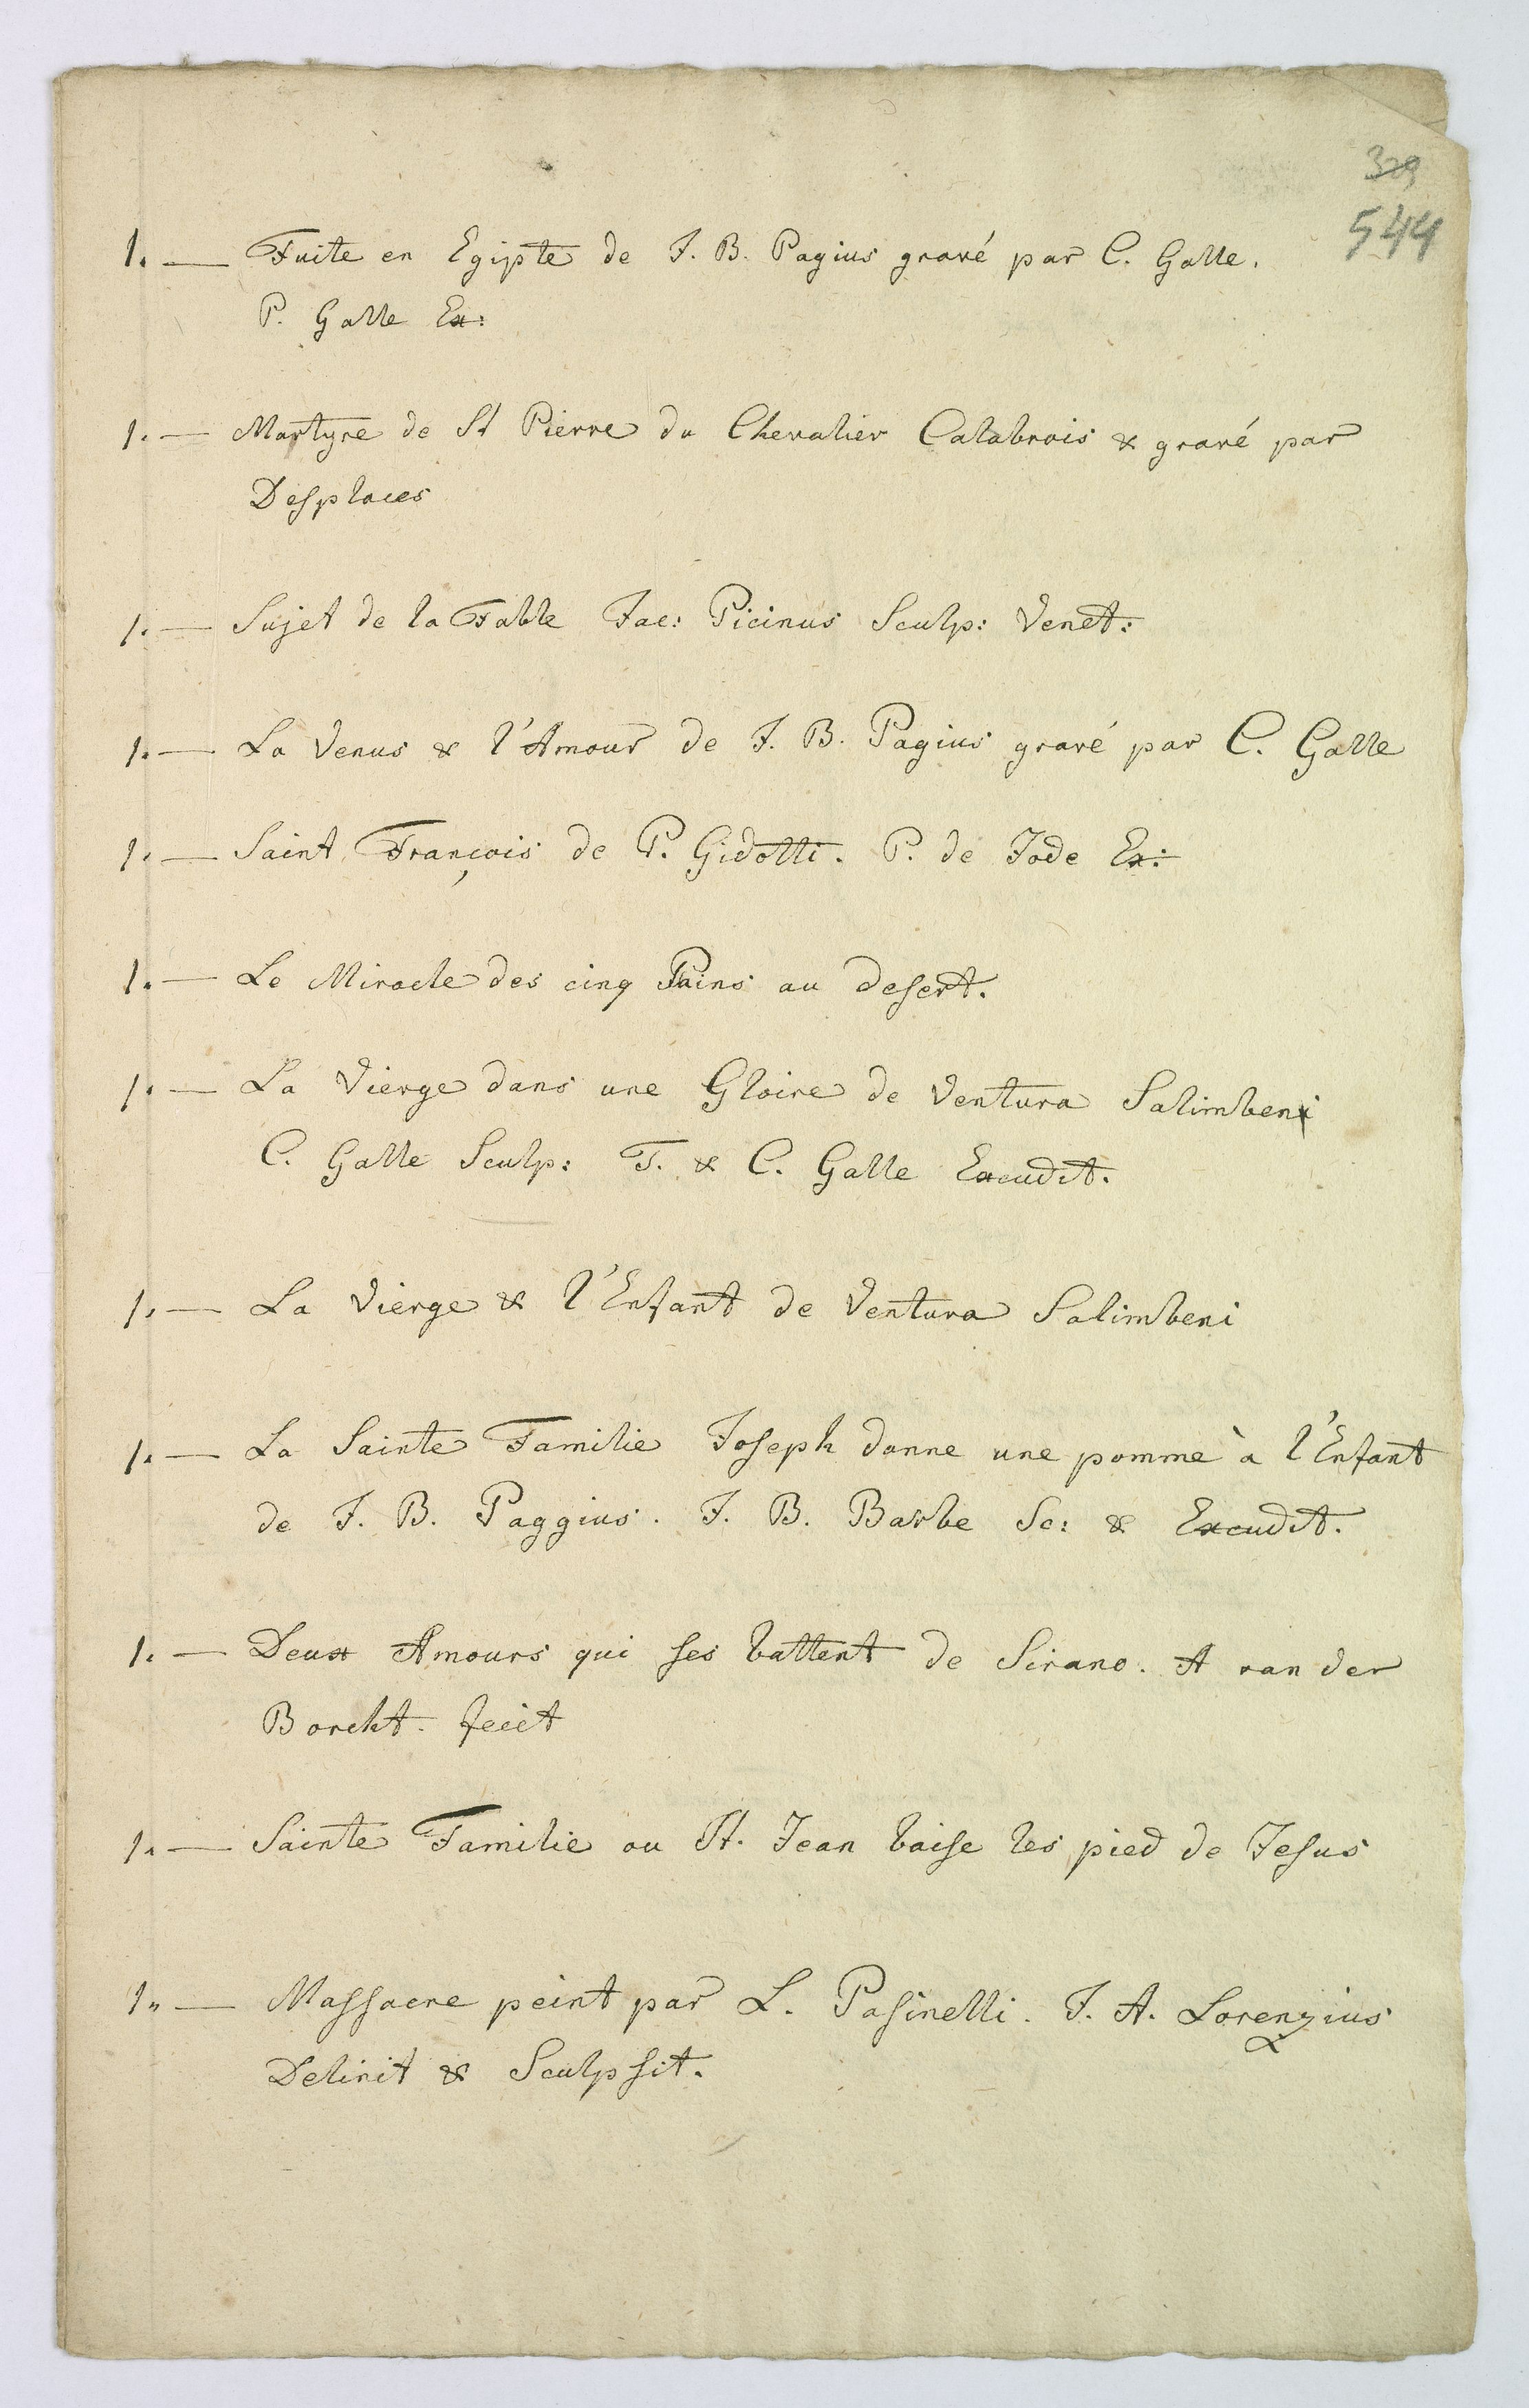 329
544
1. — Fuite en Egipte de J. B. Pagius gravé par C. Galle.
P. Galle Ex:
1. — Martyre de St Pierre du Chevalier Calabrois & gravé par
Desplaces
1. — Sujet de la Fable Jac: Picinus Sculp: Venet:
1. — La Venus & l'Amour de J. B. Pagius gravé par C. Galle
1. — Saint François de P. Gidotti. P. de Jode Ex:
1. — Le Miracle des cinq Pains au desert.
1. — La Vierge dans une Gloire de Ventura Salimbeni
C. Galle Sculp: T. & C. Galle Excudit.
1. — La Vierge & l'Enfant de Ventura Salimbeni
1. — La Sainte Familie Joseph donne une pomme à l'Enfant
de J. B. Paggius. J. B. Barbe Sc: & Excudit.
1. — Deux Amours qui ses battent de Sirano. A van der
Borcht. fecit
1. — Sainte Familie ou St. Jean baise les pied de Jesus
1. — Massacre peint par L. Pasinelli. J. A. Lorenzius
Delinit & Sculpsit.